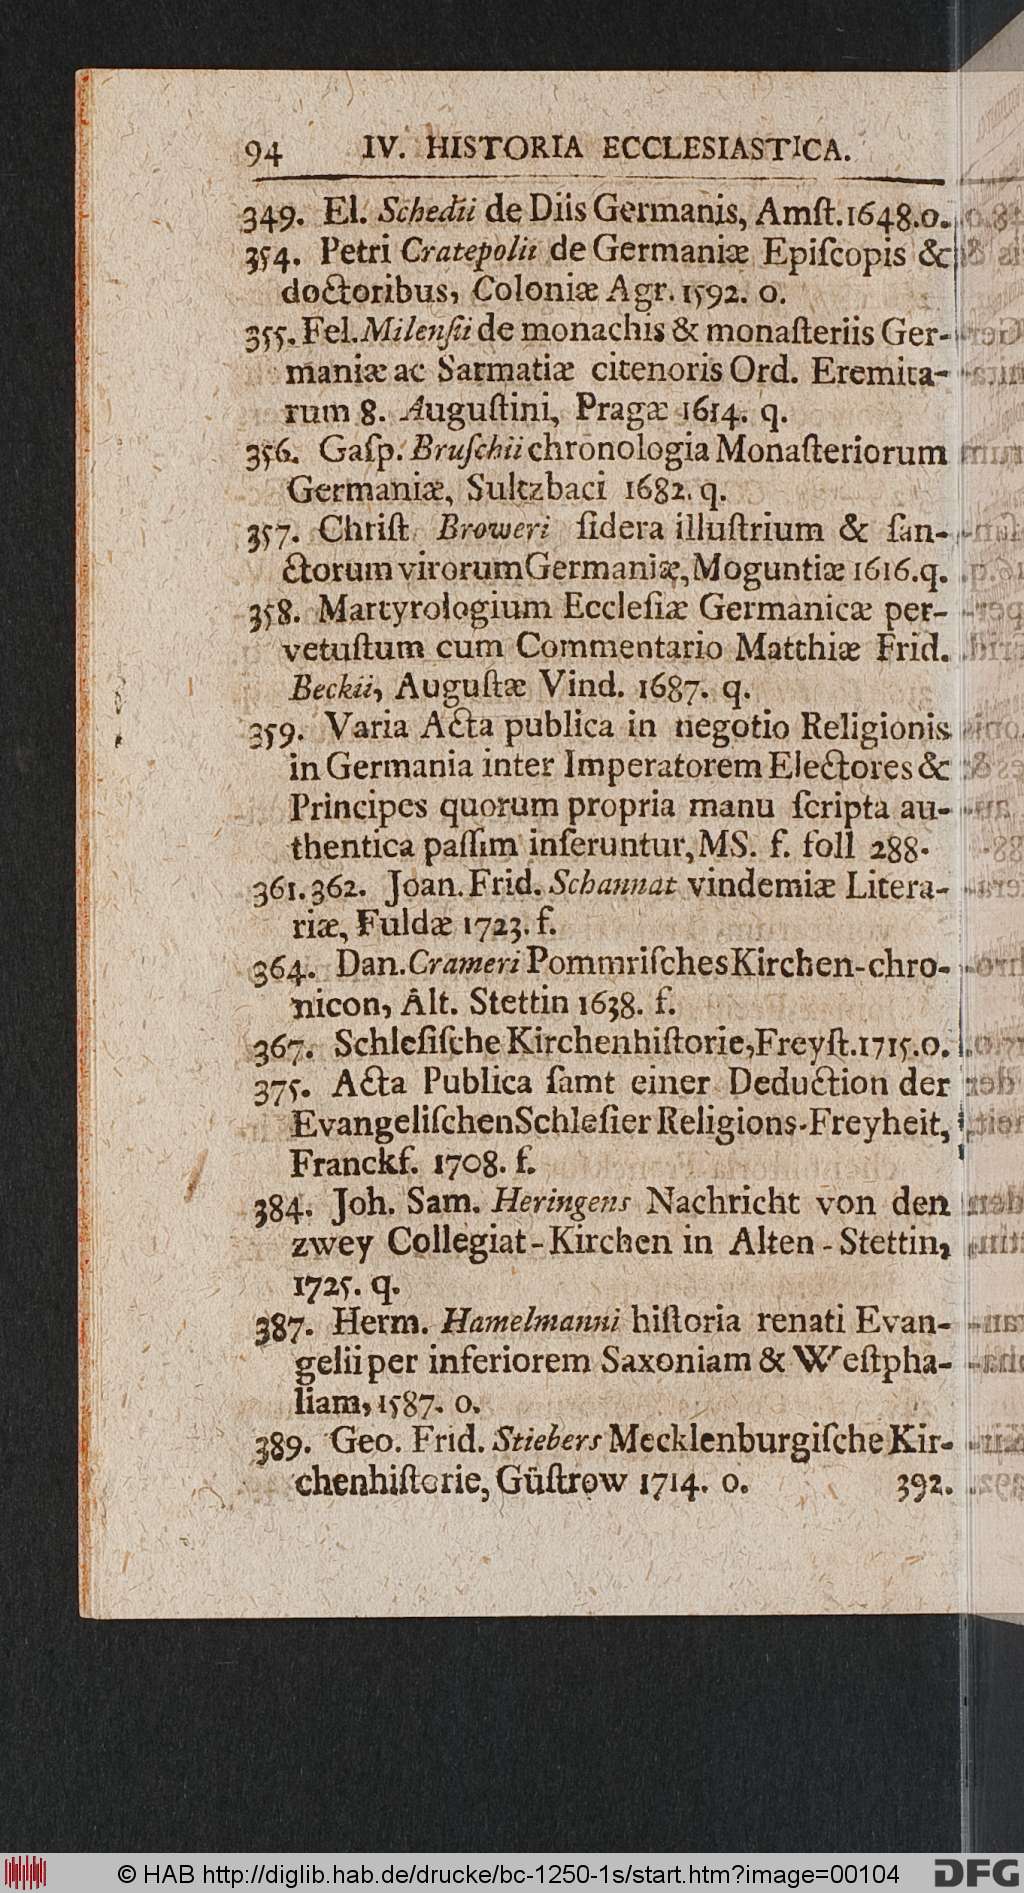 94 IV. HISTORIA ECCLESIASTICA.
349. El. Schedii de Diis Germanis, Amſt. 1648. o.
354. Petri Cratepolii de Germaniæ Epiſcopis &
doctoribus, Coloniæ Agr. 1592. o.
355. Fel. Milenſii de monachis & monaſteriis Ger-
maniæ ac Sarmatiæ citenoris Ord. Eremita-
rum 8. Auguſtini, Pragæ 1614. q.
356. Gaſp. Bruſchii chronologia Monaſteriorum
Germaniæ, Sultzbaci 1682. q.
357. Chriſt Broweri ſidera illuſtrium & ſan-
ctorum virorum Germaniæ, Moguntiæ 1616. q.
358. Martyrologium Eccleſiæ Germanicæ per-
vetuſtum cum Commentario Matthiæ Frid.
Beckii, Auguſtæ Vind. 1687. q.
359. Varia Acta publica in negotio Religionis
in Germania inter Imperatorem Electores &
Principes quorum propria manu ſcripta au-
thentica paſſim inſeruntur, MS. f. foll 288.
361. 362. Joan. Frid. Schannat vindemiæ Litera-
riæ, Fuldæ 1723. f.
364. Dan. Crameri Pommriſches Kirchen-chro-
nicon, Alt. Stettin 1638. f.
367. Schleſiſche Kirchenhiſtorie, Freyſt. 1715. o.
375. Acta Publica ſamt einer Deduction der
Evangeliſchen Schleſier Religions-Freyheit,
Franckf. 1708. f.
384. Joh. Sam. Heringens Nachricht von den
zwey Collegiat-Kirchen in Alten-Stettin,
1725. q.
387. Herm. Hamelmanni hiſtoria renati Evan-
gelii per inferiorem Saxoniam & Weſtpha-
liam, 1587. o.
389. Geo. Frid. Stiebers Mecklenburgiſche Kir-
chenhiſtorie, Güſtrow 1714. o. 392.
© HAB http://diglib.hab.de/drucke/bc-1250-1s/start.htm?image=00104
DFG